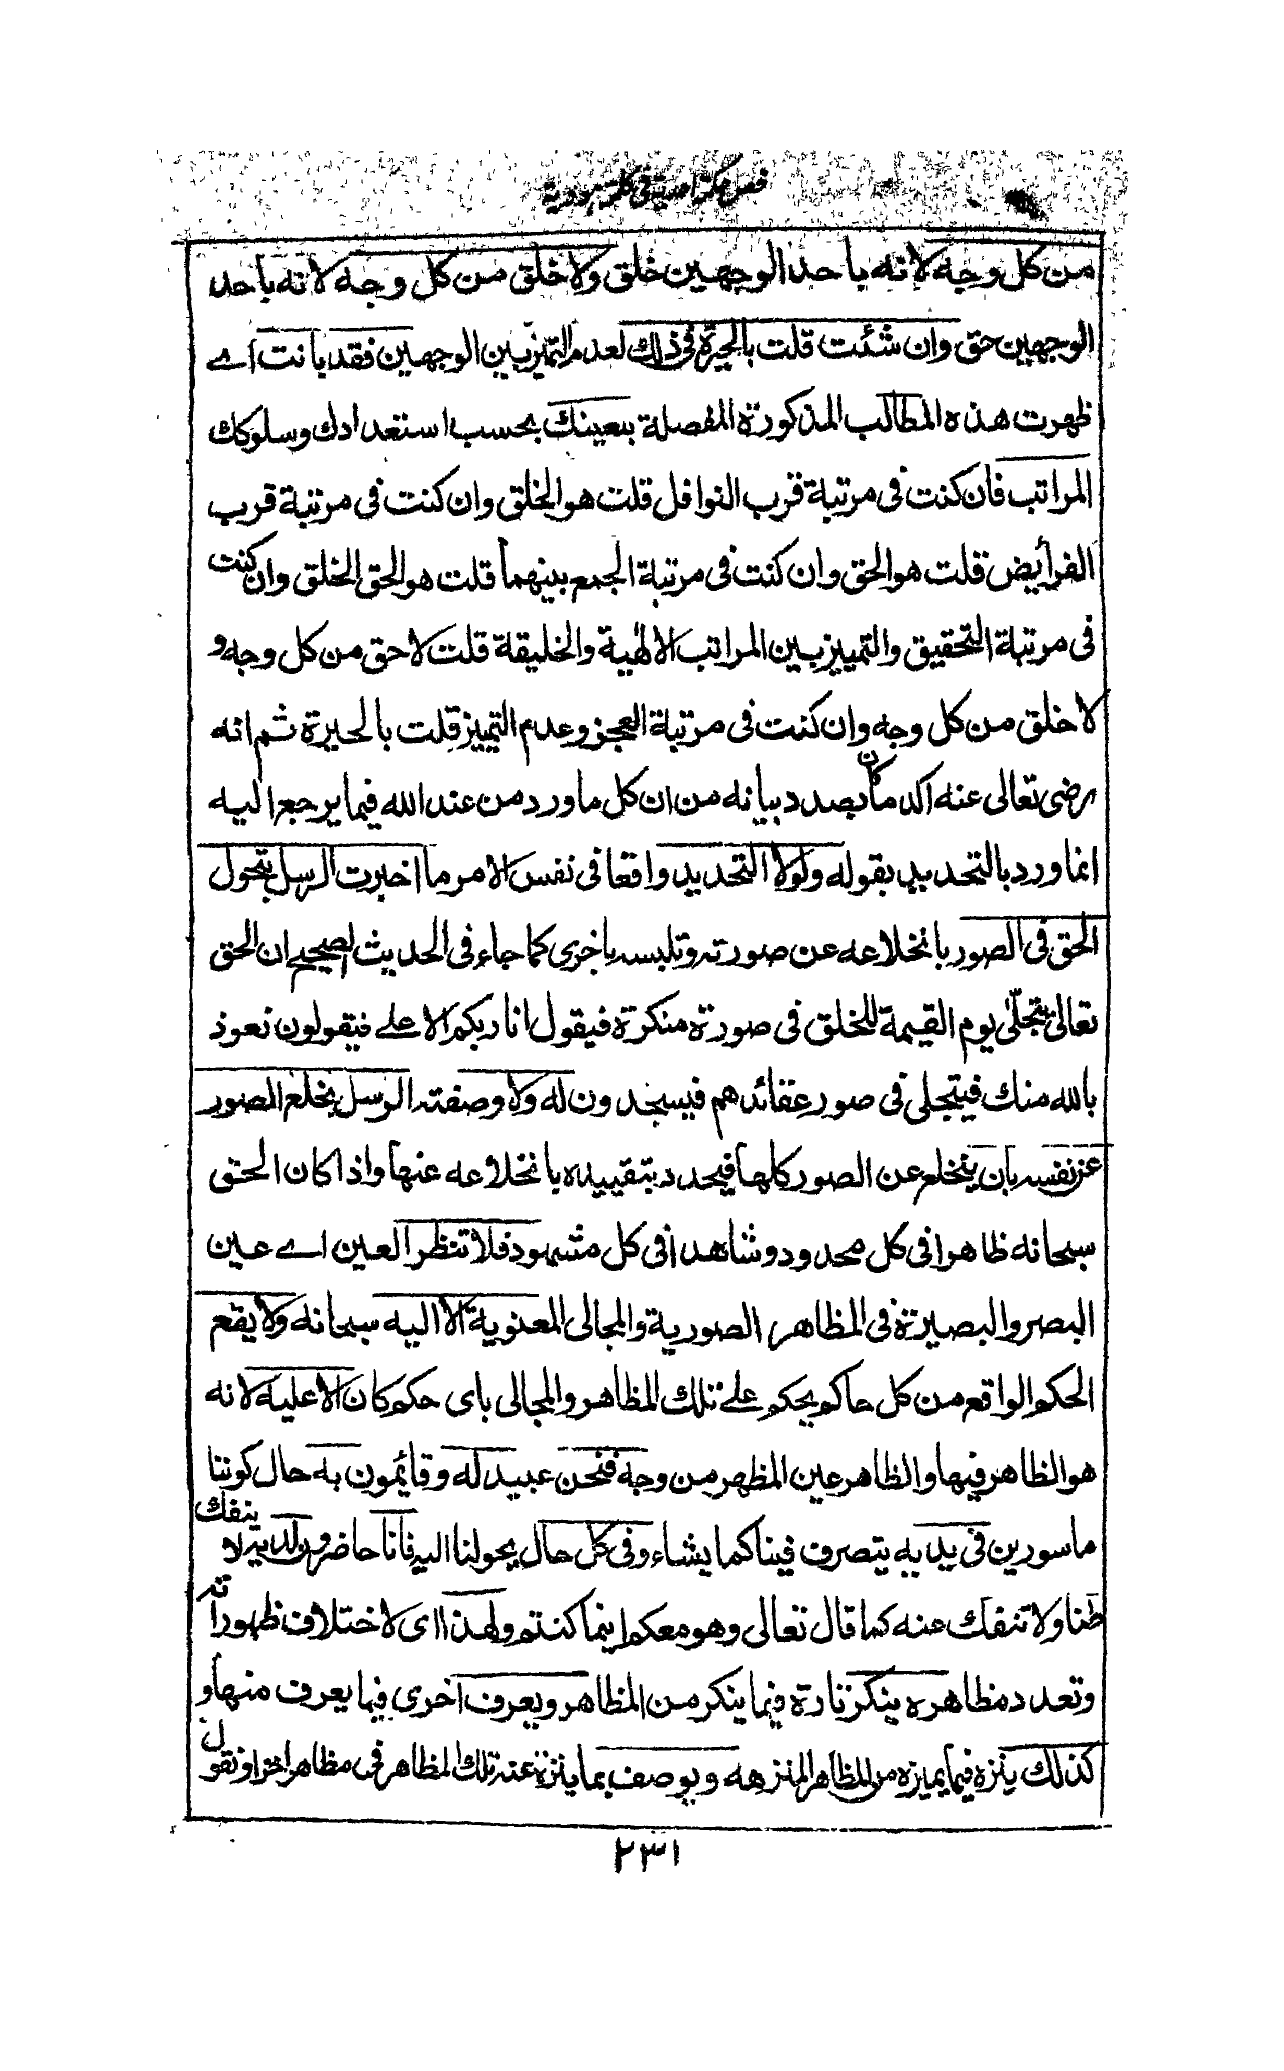 فص حكمة احدية في كلمة هودية
من كل وجه لانه باحد الوجهين خلق ولا خلق من كل وجه لانه باحد
الوجهين حق وان شئت قلت بالحيرة فى ذلك لعدم التميز بين الوجهين فقد بانت اے
ظهرت هذه المطالب المذكورة المفصلة بتعينك بحسب استعدادك وسلوكك
المراتب فان كنت فى مرتبة قرب النوافل قلت هو الخلق وان كنت فى مرتبة قرب
الفرأيض قلت هو الحق وان كنت فى مرتبة الجمع بينهما قلت هو الحق الخلق وان كنت
فى مرتبة التحقيق والتمييز بين المراتب الالهية والخليقة قلت لا حق من كل وجه و
لا خلق من كل وجه وان كنت فى مرتبة العجز وعدم التمييز قلت بالحيرة ثم انه
رضى تعالى عنه اكد ما كان بصدد بيانه من ان كل ما ورد من عند الله فيما يرجع اليه
انما ورد بالتحديد بقوله ولولا التحديد واقعا فى نفس الامر ما اخبرت الرسل بتحول
الحق فى الصور بانخلاعه عن صورته وتلبسه باخرى كما جاء فى الحديث الصحيح ان الحق
تعالى يتجلّى يوم القيمة للخلق فى صورة منكرة فيقول انا ربكم الاعلے فيقولون نعوذ
بالله منك فيتجلى فى صور عقائدهم فيسجدون له ولا وصفته الرسل بخلع الصور
عن نفسه بان ينخلع عن الصور كلها فيحدد بتقييده بانخلاعه عنها واذا كان الحق
سبحانه ظاهرا فى كل محدود وشاهدا فى كل مشهود فلا تنظر العين اے عين
البصر والبصيرة فى المظاهر الصورية والمجالى المعنوية الا اليه سبحانه ولا يقع
الحكم الواقع من كل حاكم يحكم علے تلك المظاهر والمجالى باى حكم كان الا عليه لانه
هو الظاهر فيها والظاهر عين المظهر من وجه فنحن عبيد له وقايمون به حال كوننا
ماسورين فى يديه يتصرف فينا كما يشاء وفى كل حال يحولنا اليه فانا حاضرون لديه لا ينفك
عنا ولا تنفك عنه كما قال تعالى وهو معكم اينما كنتم ولهذا اى لاختلاف ظهوراته
وتعدد مظاهره ينكر تارة فيما ينكر من المظاهر ويعرف اخرى فيما يعرف منها و
كذلك ينزه فيما يميزه من المظاهر المنزهه ويوصف بما ينزه عنه تلك المظاهر فى مظاهر اخر او نقول
٢٣١